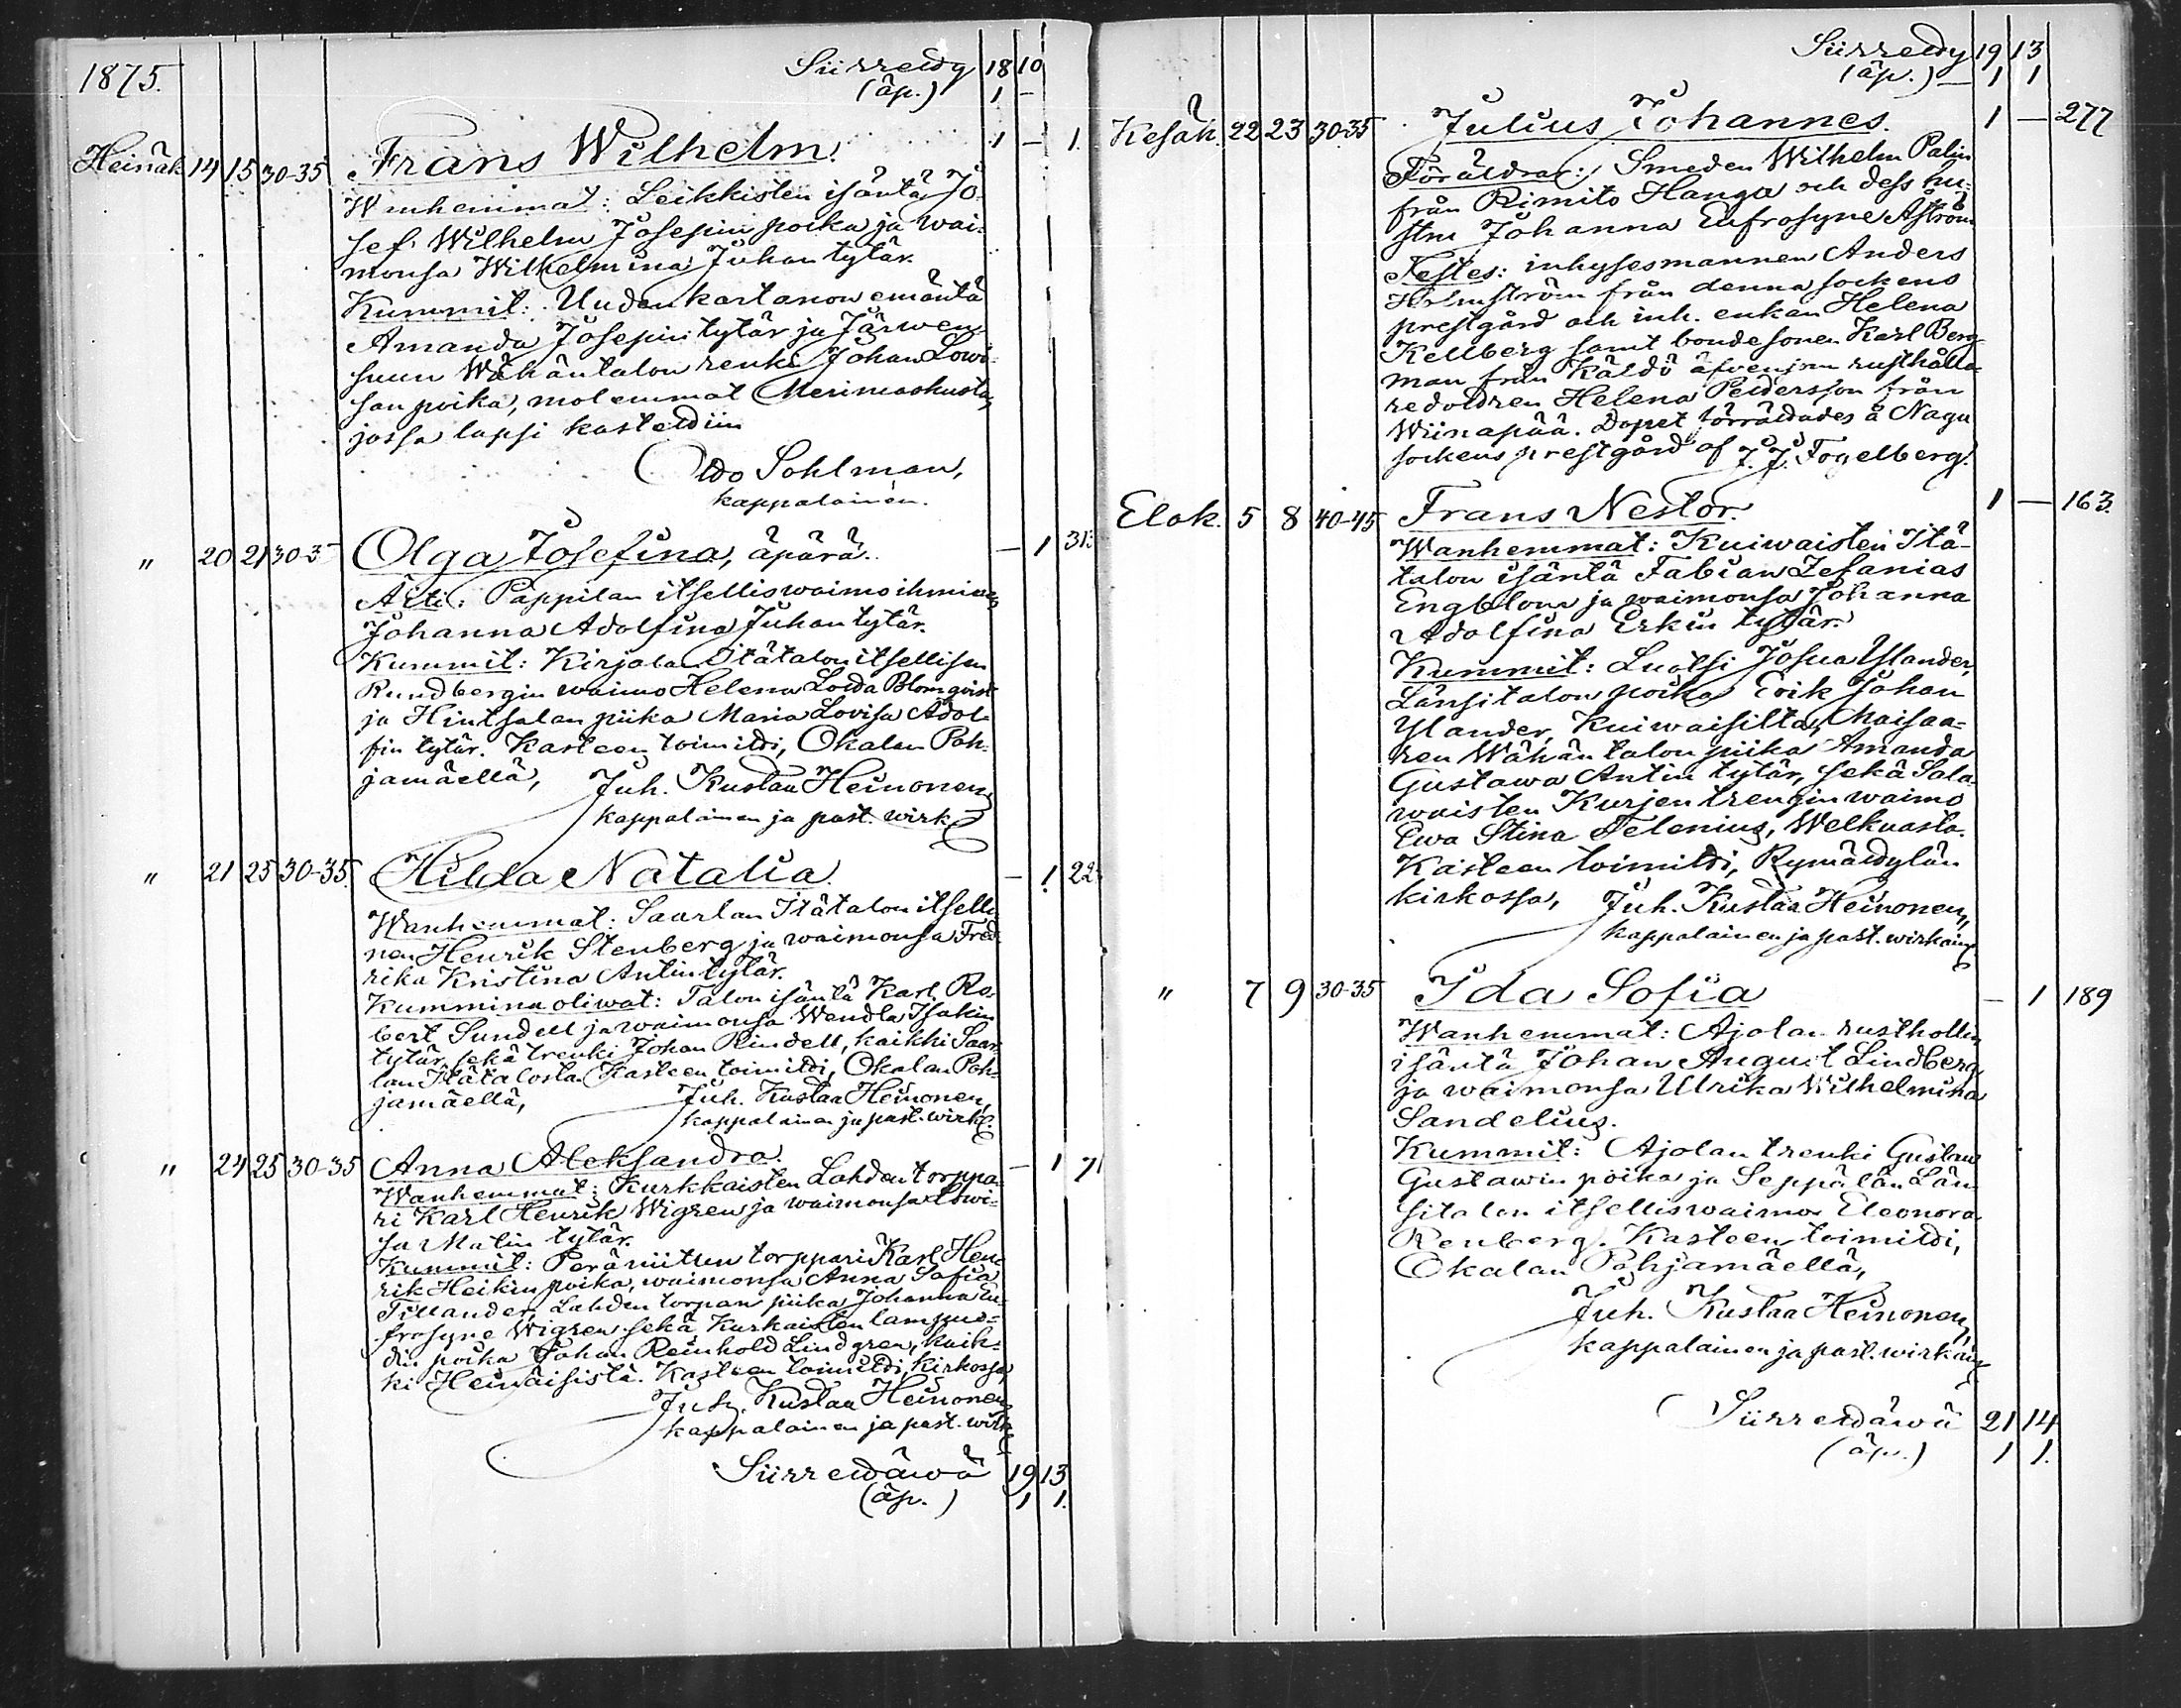 1875.
Siirretty 18 10
(äp.) 1 —
Heinäk 14 15 30-35 Frans Wilhelm. 1 — 1
Wanhemmat: Leikkisten isäntä Jo-
sef Wilhelm Josepin poika ja wai-
monsa Wilhelmina Juhan tytär.
Kummit: Uudenkartanon emäntä
Amanda Josepin tytär ja Järwen-
suun Wähäntalon renki Johan Lowi-
san poika, molemmat Merimaskusta,
jossa lapsi kastettiin
Sohlman,
kappalainen.
" 20 21 30-3 Olga Josefina, äpärä. — 1 313
Äiti: Pappilan itselliswaimoihminen
Johanna Adolfina Juhan tytär.
Kummit: Kirjolan Itätalon itsellisen
Rundbergin waimo Helena Lovisa Blomqvist
ja Hintsalan piika Maria Lovisa Adol-
fin tytär. Kasteen toimitti, Okalan Poh-
jamäellä, Juh. Kustaa Heinonen,
kappalainen ja past. wirk.
" 21 25 30-35. Hilda Natalia. — 1 22
Wanhemmat: Saarlan Itätalon itselli-
nen Henrik Stenberg ja waimonsa Fred-
rika Kristina Antin tytär.
Kummina oliwat: Talon isäntä Karl Ro-
bert Sundell ja waimonsa Wendla Isakin
tytär, sekä trenki Johan Rindell, kaikki Saar-
lan Itätalosta. Kasteen toimitti, Okalan Poh-
jamäellä, Juh. Kustaa Heinonen,
kappalainen ja past. wirk.
" 24 25 30-35 Anna Aleksandra. — 1 71
Wanhemmat: Kurkkaisten Lahden torppa-
ri Karl Henrik Wigren ja waimonsa Lowi-
sa Matin tytär.
Kummit: Peräniitun torppari Karl Hen-
rik Heikin poika, waimonsa Anna Sofia
Tillander, Lahden torpan piika Johanna Eu-
frosyne Wigren sekä Kurkaisten lampuo-
din poika Johan Reinhold Lindgren, kaik-
ki Heinäisistä. Kasteen toimitti, kirkossa,
Juh. Kustaa Heinonen
kappalainen ja past. wirk.
Siirrettäwä 19 13
(äp.) 1 1.
Siirretty 19 13
(äp.) — 1 1
Kesäk. 22 23 30-35 Julius Johannes. 1 — 277
Föräldrar: Smeden Wilhelm Palin
från Rimito Hanga och dess hu-
stru Johanna Eufrosyne Åström
Testes: inhysesmannen Anders
Holmström från denna sockens
prestgård och inh. enkan Helena
Kellberg samt bondesonen Karl Berg-
man från Käldö äfvensom rusthålla-
redottren Helena Peidersson från
Wiinapää. Dopet förrättades å Nagu
sockens prestgård af J. J. Fogelberg.
Elok. 5 8 40-45 Frans Nestor. 1 — 163.
Wanhemmat: Kuiwaisten Itä-
talon isäntä Fabian Zefanias
Engblom ja waimonsa Johanna
Adolfina Erkin tytär.
Kummit: Luotsi Josua Ylander,
Länsitalon poika Erik Johan
Ylander, Kuiwaisilta, Maisaa-
ren Wähäntalon piika Amanda
Gustawa Antin tytär, sekä Sala-
waisten Kurjen trengin waimo
Ewa Stina Telenius, Welkuasta.
Kasteen toimitti, Rymättylän
kirkossa, Juh. Kustaa Heinonen,
kappalainen ja past. wirkain.
" 7 9 30-35 Ida Sofia — 1 189
Wanhemmat: Ajolan rusthollin
isäntä Johan August Lindberg
ja waimonsa Ulrika Wilhelmina
Sandelius.
Kummit: Ajolan trenki Gustaw
Gustawin poika ja Seppälän Län-
sitalon itselliswaimo Eleonora
Renberg. Kasteen toimitti,
Okalan Pohjamäellä,
Juh. Kustaa Heinonen,
kappalainen ja past. wirkain
Siirrettäwä 21 14
(äp.) 1 1.